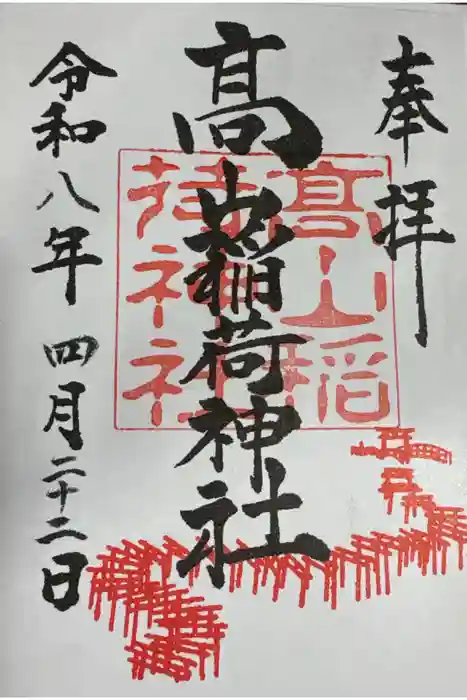 奉拝
髙山稲荷神社
髙山稲荷神社
令和八年 四月二十二日